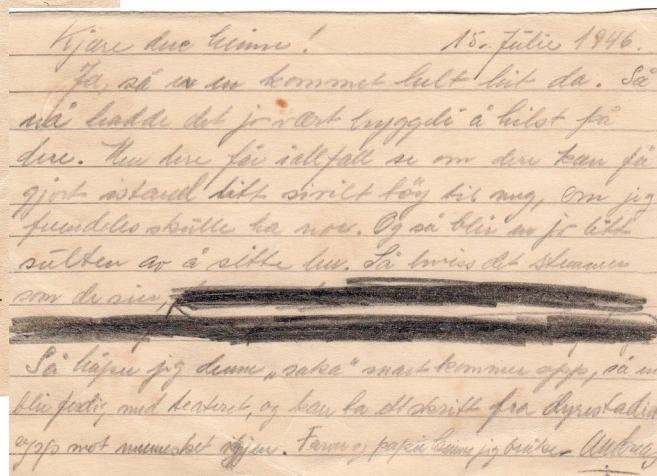 Kjære due heime! 15. Julie 1946.
Ja, så er en kommet helt hit da. Så
nå hadde det jo vært hyggeli å hilst på
dere. Men dere får iallfall se om dere kan få
gjort istand litt sivilt töy til meg, om jeg
fremdeles skulle ha noe. Og så blir en jo litt
sulten av å sitte her. Så hviss det stemmer
som de sier,
Så håper jeg denne „saka" snart kommer opp, så en
blir ferdig med teateret, og kan ta et skritt fra dyrestadiet
opp mot mennesket igjen. Farvel og